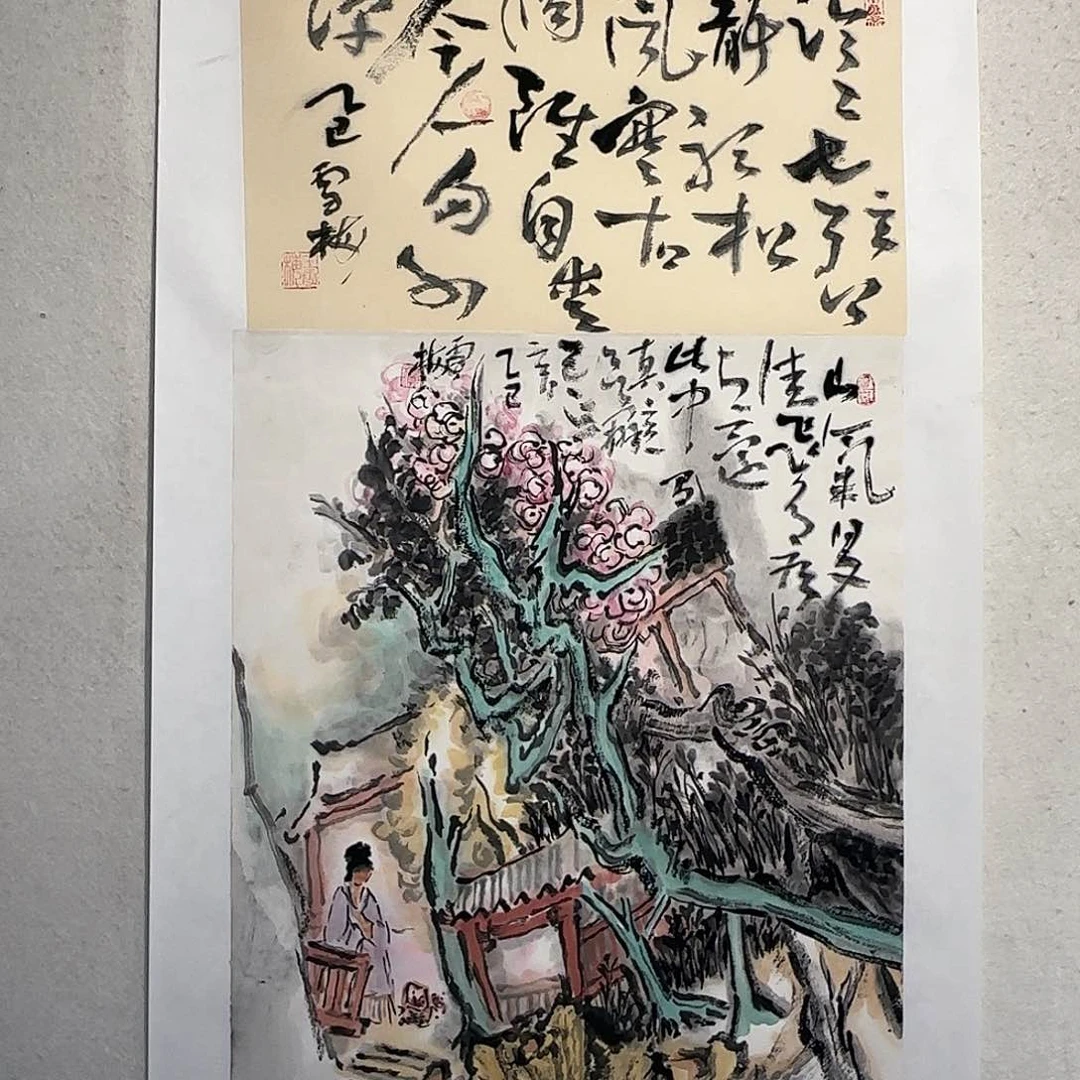 泠泠七弦上
静听松
风寒古
调虽自爱
今人多不
弹
乙巳雪梅
山氣日夕
佳飛鳥相
与還
此中有
真意
欲辨
已忘
言
乙巳
雪
梅